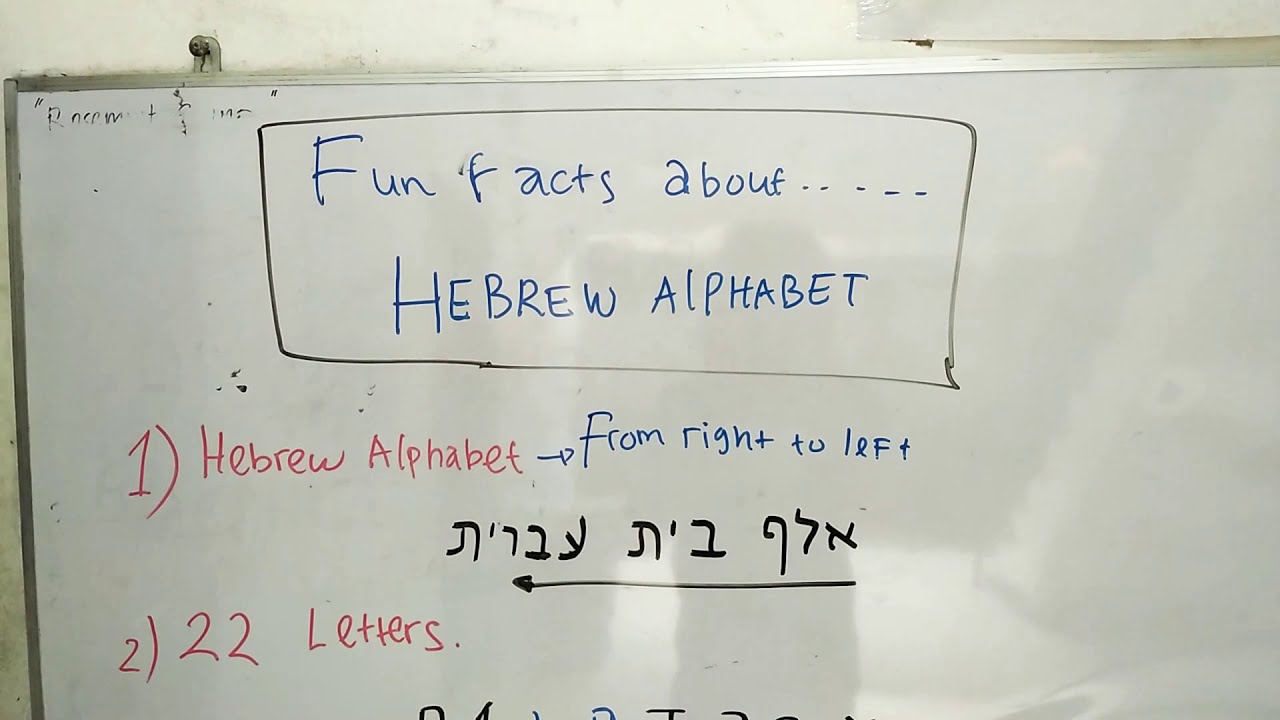 Fun facts about.....
HEBREW ALPHABET
1) Hebrew Alphabet → From right to left
אלף בית עברית
2) 22 Letters.